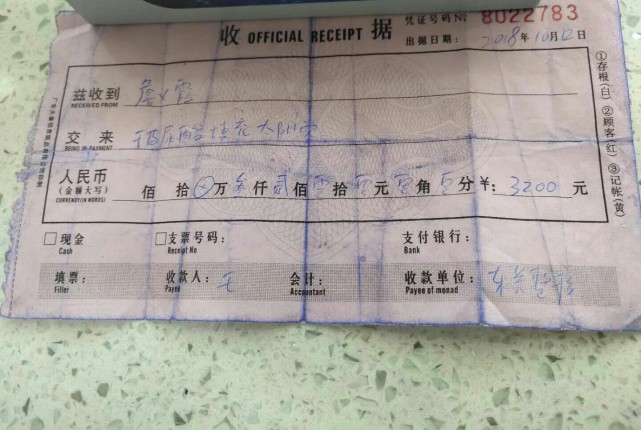 凭证号码 No 8022783
收 OFFICIAL RECEIPT 据
出据日期： 2018年10月12日
兹收到 詹义霞
RECEIVED FROM
交来 玻尿酸填充大阴唇
BEING IN PAYMENT
人民币 佰 拾 ⊗ 万 叁 仟 贰 佰 零 拾 零 元 零 角 零 分 ¥: 3200 元
(金额大写)
CURRENCY(IN WORDS)
□现金 □支票号码： 支付银行：
Cash Receipt No Bank
填票： 收款人： 王 会计： 收款单位：
Filler Payee Accountant Payee of monad
①存根(白) ②顾客(红) ③记帐(黄)